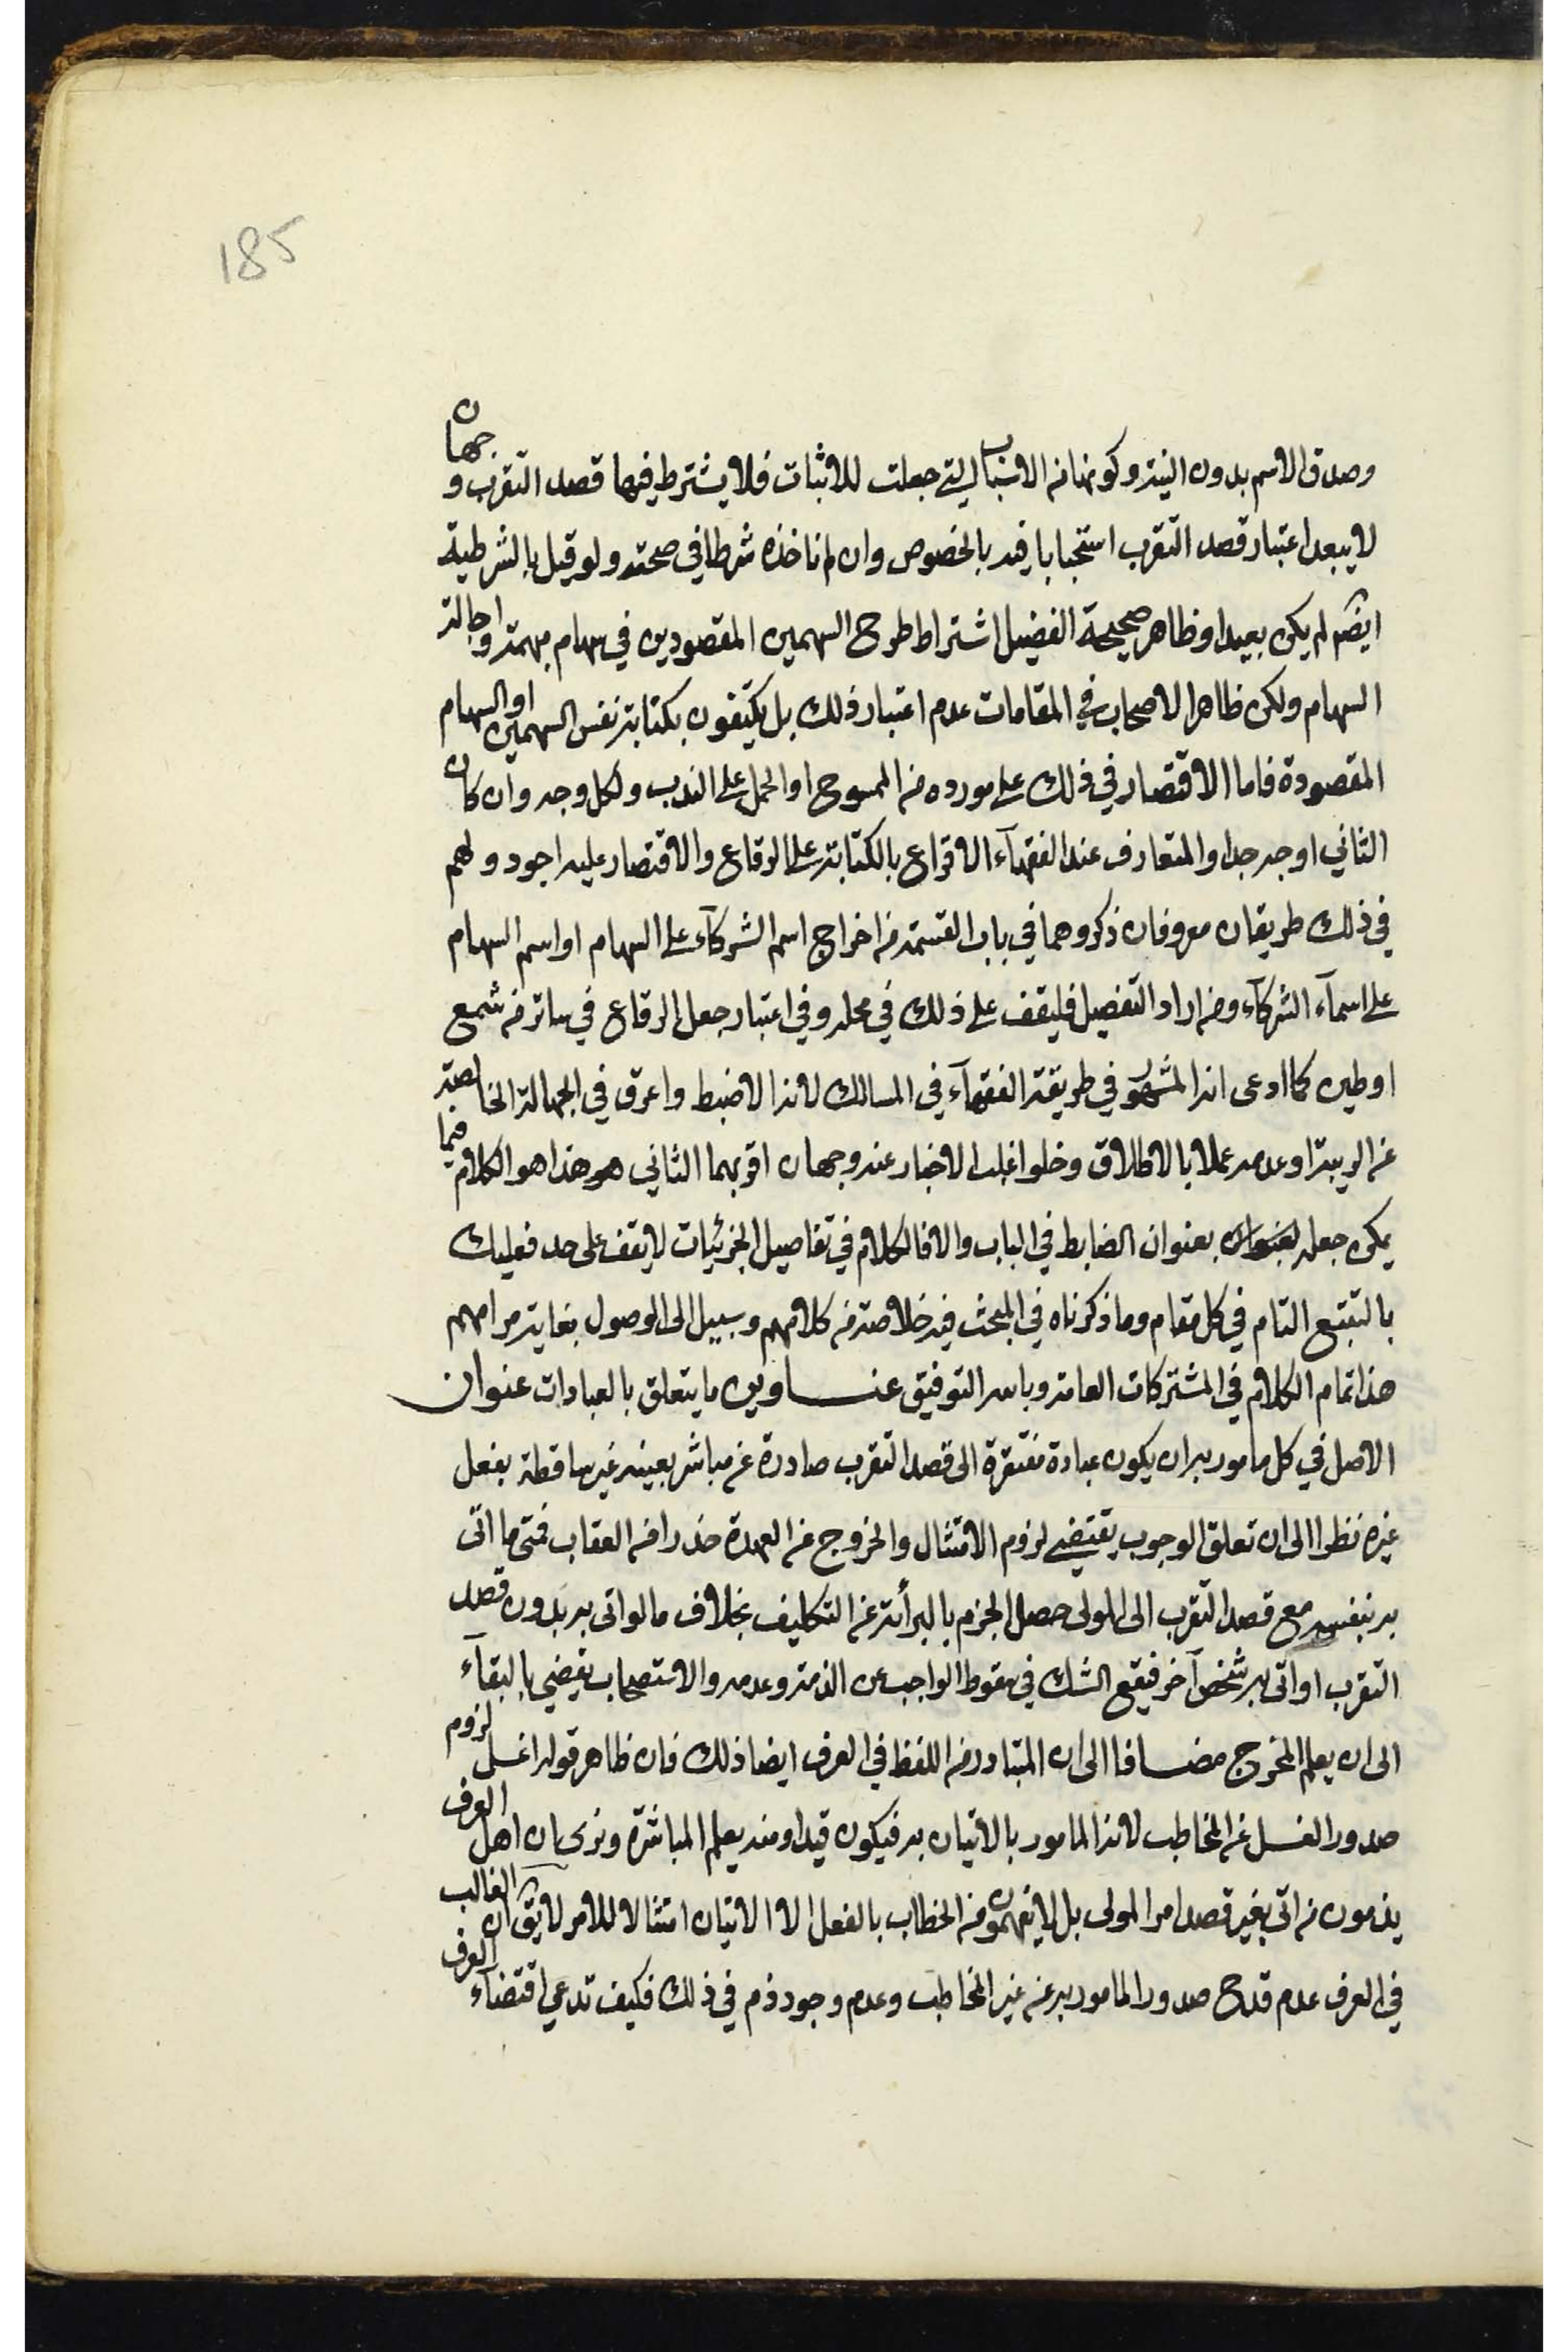 185
وصدق الاسم بدون النية وكونها من الاسباب التي جعلت للاثبات فلا يشترط فيها قصد التقرب وجهان
لا يبعد اعتبار قصد التقرب استحبابا فيه بالخصوص وان لم ناخذه شرطا في صحته ولو قيل بالشرطية
ايضا لم يكن بعيدا وظاهر صحيحة الفضيل اشتراط طرح السهمين المقصودين في سهام مبهمة واجالة
السهام ولكن ظاهر الاصحاب في المقامات عدم اعتبار ذلك بل يكتفون بكتابة نفس السهمين او السهام
المقصودة فاما الاقتصار في ذلك على مورده من الممسوح او الحمل على الندب ولكل وجه وان كان
الثاني اوجه جدا والمتعارف عند الفقهآء الاقراع بالكتابة على الرقاع والاقتصار عليه اجود ولهم
في ذلك طريقان معروفان ذكروهما في باب القسمة من اخراج اسم الشركآء على السهام او اسم السهام
على اسمآء الشركآء ومن اراد التفصيل فليقف على ذلك في محله وفي اعتبار جعل الرقاع في ساتر من شمع
او طين كما ادعى انه المشهور في طريقة الفقهآء في المسالك لانه الاضبط واعرق في الجهالة الخالصة
عن الريبة او عدمه عملا بالاطلاق وخلو اغلب الاخبار عنه وجهان اقربهما الثاني هو هذا هو الكلام فيما
يمكن جعله بعنوان بعنوان الضابط في الباب والا فالكلام في تفاصيل الجزئيات لا يقف على حد فعليك
بالتتبع التام في كل مقام وما ذكرناه في المبحث فيه خلاصة من كلامهم وسبيل الى الوصول بغاية مرامهم
هذا تمام الكلام في المشتركات العامة وبالله التوفيق عنـــاوين ما يتعلق بالعبادات عنوان
الاصل في كل مامور به ان يكون عبادة مفتقرة الى قصد التقرب صادرة عن مباشر بعينه غير ساقطة بفعل
غيره نظرا الى ان تعلق الوجوب يقتضي لزوم الامتثال والخروج عن العهدة حذرا من العقاب فمتى ما اتى
به بنفسه مع قصد التقرب الى المولى حصل الجزم بالبرأئة عن التكليف بخلاف ما لو اتى به بدون قصد
التقرب او اتى به شخص آخر فيقع الشك في سقوط الواجب عن الذمة وعدمه والاستصحاب يقضي بالبقآء
الى ان يعلم المخرج مضـــافا الى ان المتبادر من اللفظ في العرف ايضا ذلك فان ظاهر قوله اغسل لزوم
صدور الغسل عن المخاطب لانه المامور بالاتيان به فيكون قيدا ومنه يعلم المباشرة ونرى ان اهل العرف
يذمون من اتى بغير قصد امر المولى بل لا يفهمون من الخطاب بالفعل الا الاتيان امتثالا للامر لا يق ان الغالب
في العرف عدم قدح صدور المامور به عن غير المخاطب وعدم وجود ذم في ذلك فكيف تدعي اقتضآء العرف